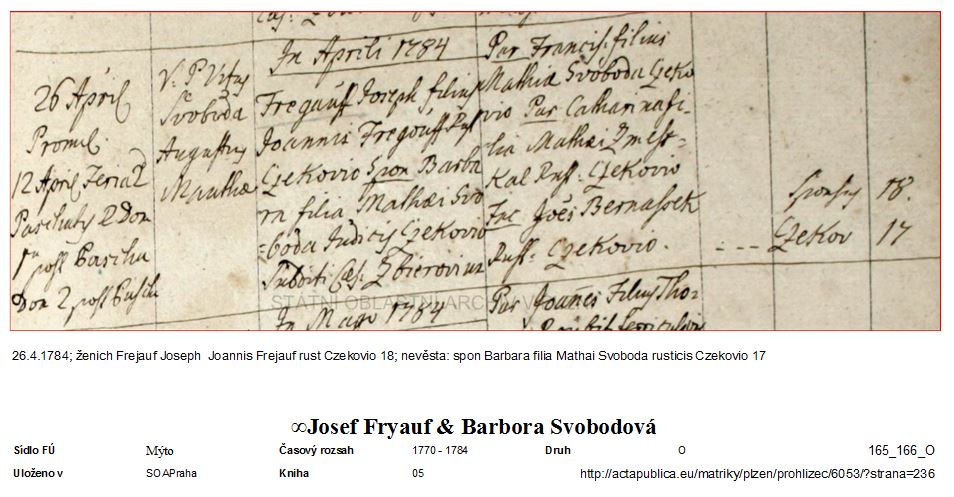 In Aprili 1784
26 April
Promul
12 April Feria 2
Paschatis 2 Dom
1 post Pascha
Dom 2 post Pasch
V. P. Vitus
Svoboda
Augustus
Mauthæ
Fregauf Joseph filius
Joannis Fregauff Rust
Czekovio Spon Barba
ra filia Mathæi Svo
=boda Judicis Czekovio
Subditi Cæs: Zbierovius
Par Francis: filius
Mathiæ Svoboda Czeko
vio Par Catharina fi-
lia Mathæi
kal Rust: Czekovio
Joês Bernassek
Rust: Czekovio.
Sponsus 18.
Czekov 17
In Mayo 1784
Par Joañes Filius Tho=
STÁTNÍ OBLASTNÍ ARCHIV V
26.4.1784; ženich Frejauf Joseph Joannis Frejauf rust Czekovio 18; nevěsta: spon Barbara filia Mathai Svoboda rusticis Czekovio 17
∞Josef Fryauf & Barbora Svobodová
Sídlo FÚ Mýto Časový rozsah 1770 - 1784 Druh O 165_166_O
Uloženo v SOAPraha Kniha 05 http://actapublica.eu/matriky/plzen/prohlizec/6053/?strana=236